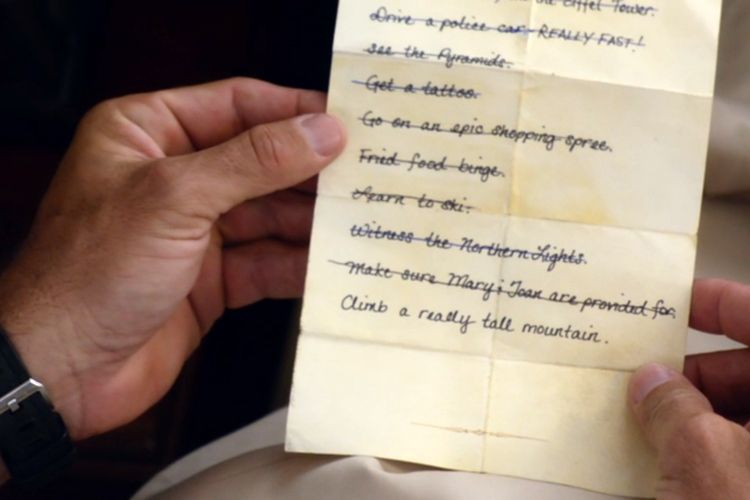 the Eiffel Tower.
Drive a police car - REALLY FAST!
See the Pyramids.
Get a tattoo.
Go on an epic shopping spree.
Fried food binge.
Learn to ski.
Witness the Northern Lights.
Make sure Mary & Joan are provided for.
Climb a really tall mountain.